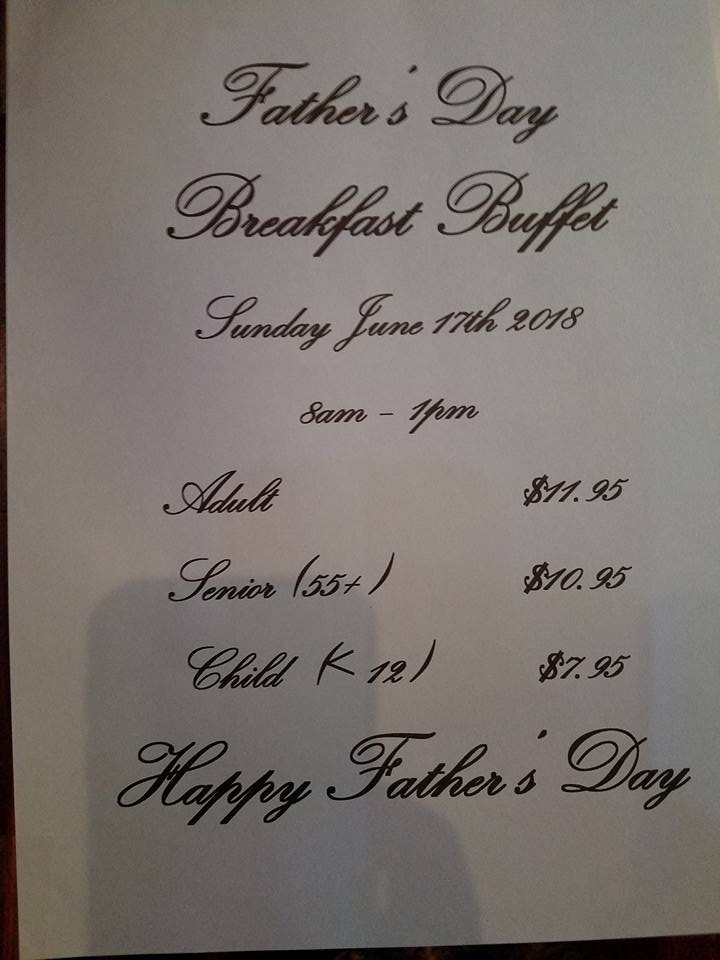 Father's Day
Breakfast Buffet
Sunday June 17th 2018
8am - 1pm
Adult $11.95
Senior (55+) $10.95
Child (< 12) $7.95
Happy Father's Day